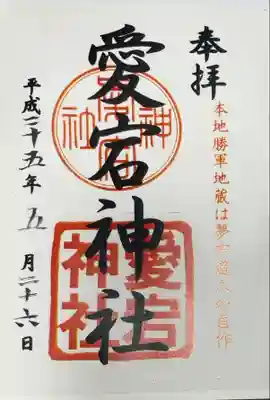 奉拝
本地勝軍地蔵は夢中道人の自作
愛宕神社
愛宕神社
平成二十五年五月二十六日